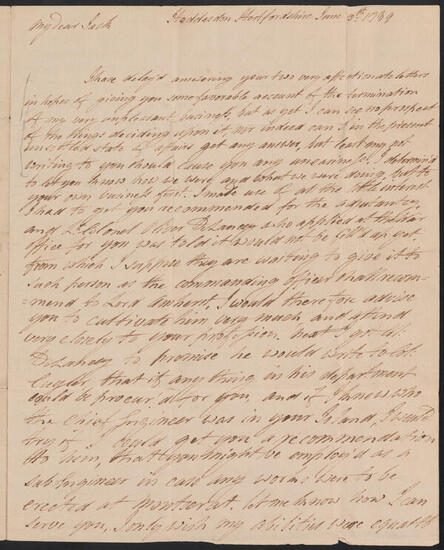 Hoddesdon Hertfordshire June 3d 1789
My Dear Jack
I have delay'd answering your two very affectionate letters
in hopes of giving you some favorable account of the termination
of my very unpleasant business, but as yet I can see no prospect
of the things deciding upon it, nor indeed can I in the present
unsettled state of affairs get any answer, but least my not
writing to you should cause you any uneasiness I determin'd
to let you know how we were and what we were doing, but to
your own business first. I made use of all the little interest
I had to get you recommended for the
and Lt Colonel Oliver DeLancey who applied at the War
office for you was told it would not be fill'd up yet,
from which I suppose they are waiting to give it to
such person as the commanding officer shall recom-
mend to Lord Amherst, I would therefore advise
you to cultivate him very much and attend
very closely to your profession. Next I got Col.
DeLancey to promise he would write to Col.
that if any thing in his department
could be procur'd for you, and if I knew who
the Chief Engineer was in your Island, I would
try if I could get you a recommendation
to him, that you might be employ'd as a
sub Engineer in case any works were to be
erected at Montserat. let me know how I can
serve you, I only wish my abilities were equal to